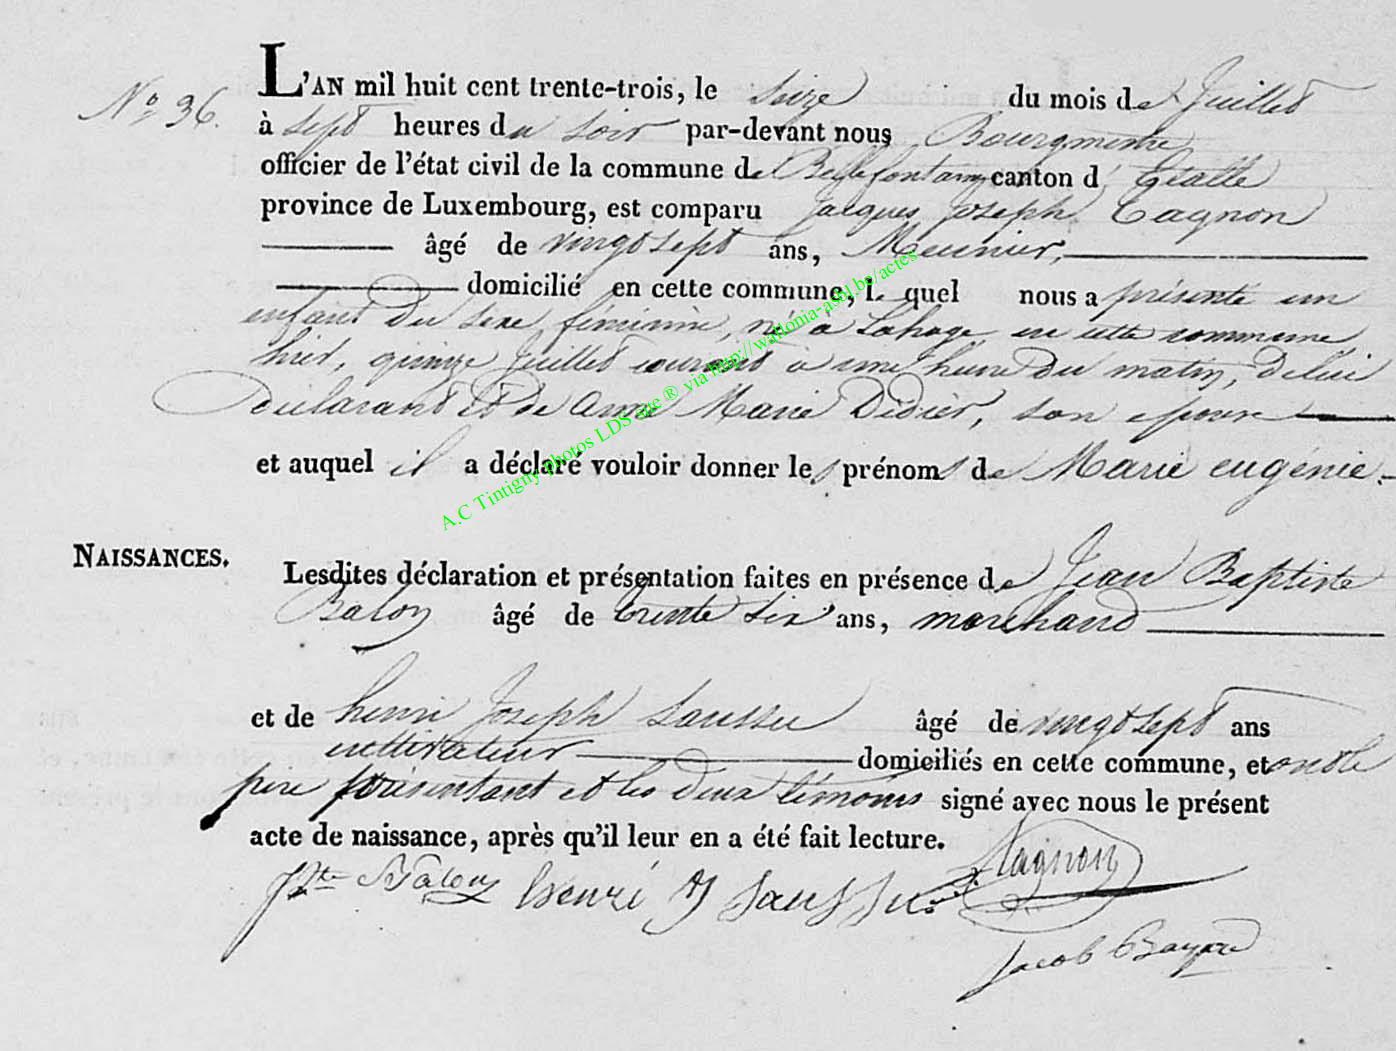 No 36.
L'AN mil huit cent trente-trois, le Seize du mois de Juillet
à sept heures du soir par-devant nous Bourgmestre
officier de l'état civil de la commune de Bellefontaine canton d' Etalle
province de Luxembourg, est comparu Jacques Joseph Tagnon
âgé de vingt sept ans, Meunier,
domicilié en cette commune, le quel nous a présenté un
enfant du sexe féminin, né à Lahage en cette commune
hier, quinze Juillet courant à une heure du matin, de lui
déclarant et de Anne Marie Didier, son epouse
et auquel il a déclaré vouloir donner les prénoms de Marie eugénie.
NAISSANCES.
Lesdites déclaration et présentation faites en présence de Jean Baptiste
Balon âgé de trente six ans, marchand
et de henri Joseph Saussu âgé de vingt sept ans
cultivateur domiciliés en cette commune, et ont le
pere présentant et les deux témoins signé avec nous le présent
acte de naissance, après qu'il leur en a été fait lecture.
Tagnon
JBte Balon henri J Saussu
Jacob Bayau
A.C Tintigny photos LDS site ® via http://wallonia-asbl.be/actes